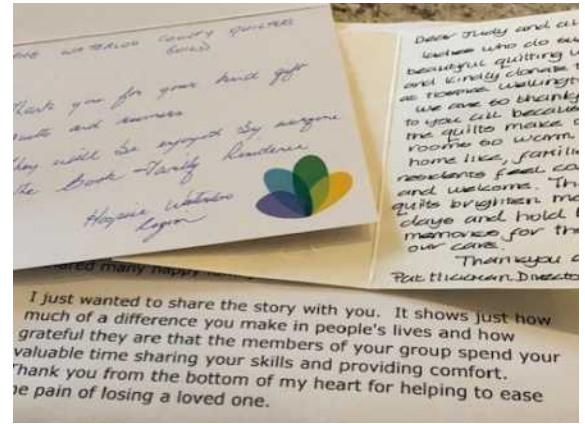 WATERLOO COUNTY QUILTERS
GUILD
Thank you for your kind gift
quilts and runners
They will be enjoyed by everyone
the Cook Family Residence
Hospice Waterloo
Region
Dear Judy and all
ladies who do
beautiful quilting
and kindly donate
at Hospice Wellington
we are so thankful
to you all because
the quilts make
rooms so warm
home like, families
residents feel
and welcome. The
quilts brighten
days and hold
memories for
our care.
Thankyou
Pat Hickman, Director
shared many happy
I just wanted to share the story with you. It shows just how
much of a difference you make in people's lives and how
grateful they are that the members of your group spend your
valuable time sharing your skills and providing comfort.
Thank you from the bottom of my heart for helping to ease
the pain of losing a loved one.